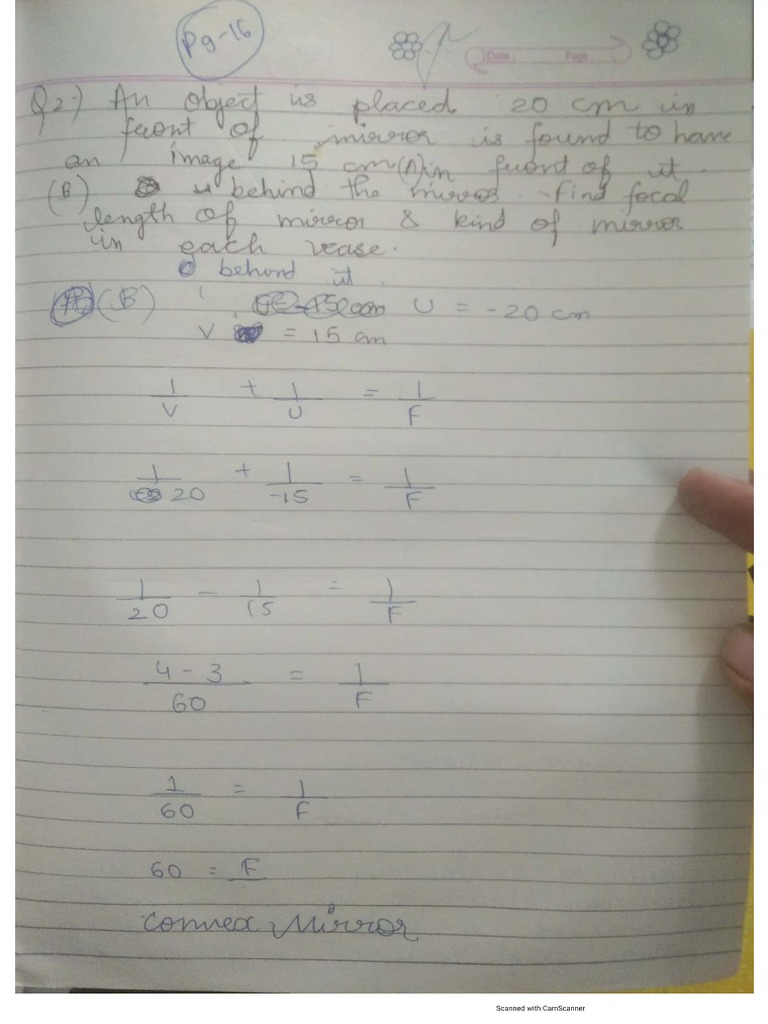 Pg-16
Date Page
Q2-) An object is placed 20 cm in
front of mirror is found to have
an image 15 cm (A) in front of it.
(B) behind the mirror. find focal
length of mirror & kind of mirror
in each case.
behind it.
(B) U = -20 cm
V = 15 cm
1/V + 1/U = 1/F
1/20 + 1/-15 = 1/F
1/20 - 1/15 = 1/F
4-3/60 = 1/F
1/60 = 1/F
60 = F
Convex Mirror
Scanned with CamScanner